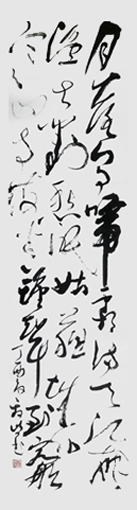 月落乌啼霜满天江枫
渔火对愁眠姑苏城外
寒山寺夜半钟声到客船
丁酉